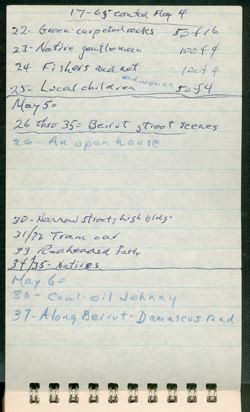 17-65 contd May 4
22- Green carpeted rocks 50 f 16
23- Native gentleman 100 f 4
24 Fishers and net 100 f 4
and women
25- Local children 50 f 4
May 5=
26 thru 35= Beirut street scenes
26- An open house
30- Narrow streets, high bldgs-
31/32 Tram car
33 Redheaded
34/35- Natives
May 6=
36- Coal-oil Johnny
37- Along Beirut-Damascus road